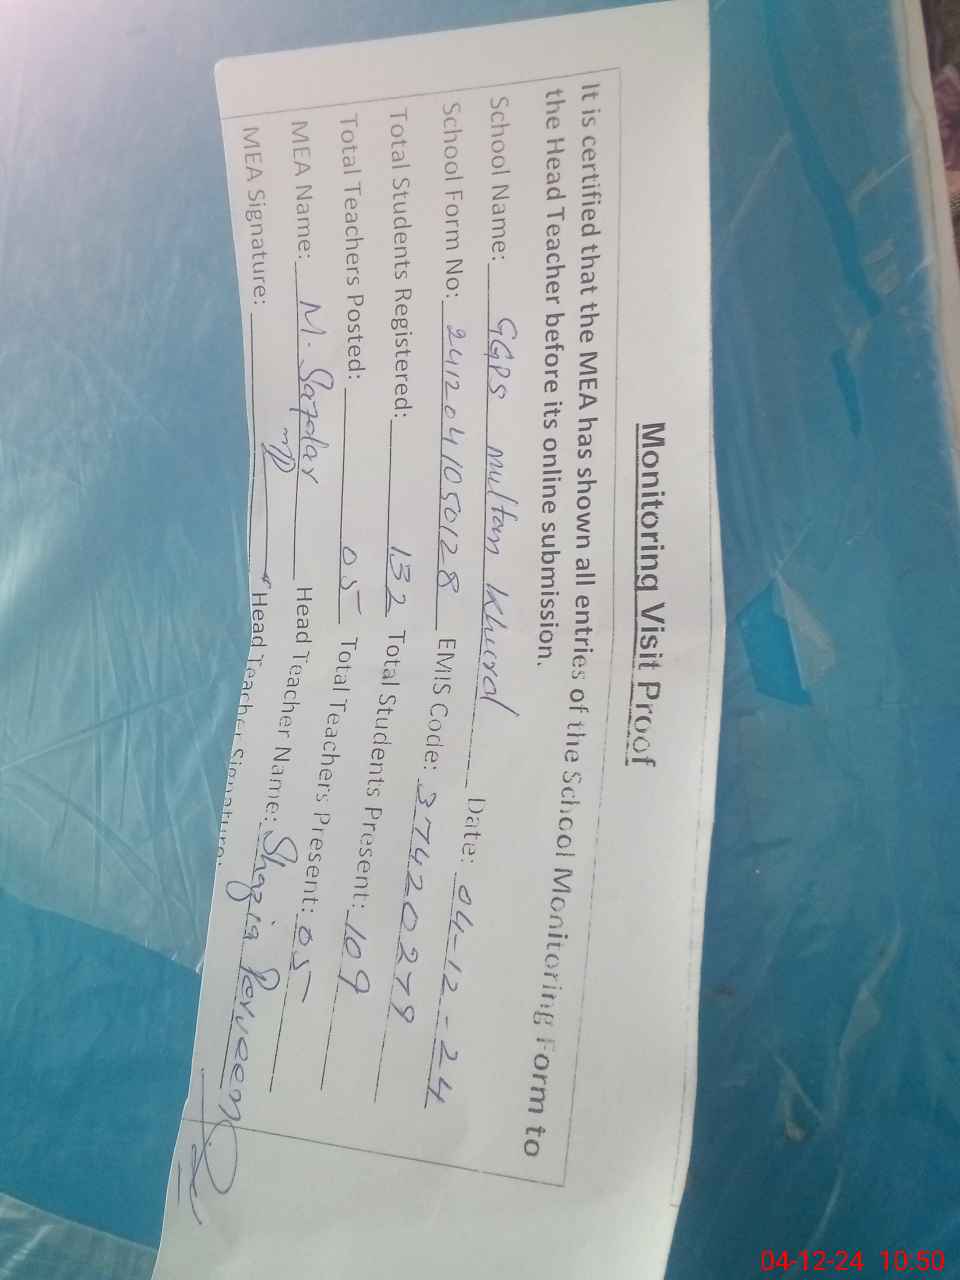 Monitoring Visit Proof
It is certified that the MEA has shown all entries of the School Monitoring Form to
the Head Teacher before its online submission.
School Name: GGPS Multan Khurd Date: 04-12-24
School Form No: 2412041050128 EMIS Code: 37420279
Total Students Registered: 132 Total Students Present: 109
Total Teachers Posted: 05 Total Teachers Present: 05
MEA Name: M. Safdar Head Teacher Name: Shazia Parveen
MEA Signature: Head Teacher Signature:
04-12-24 10:50